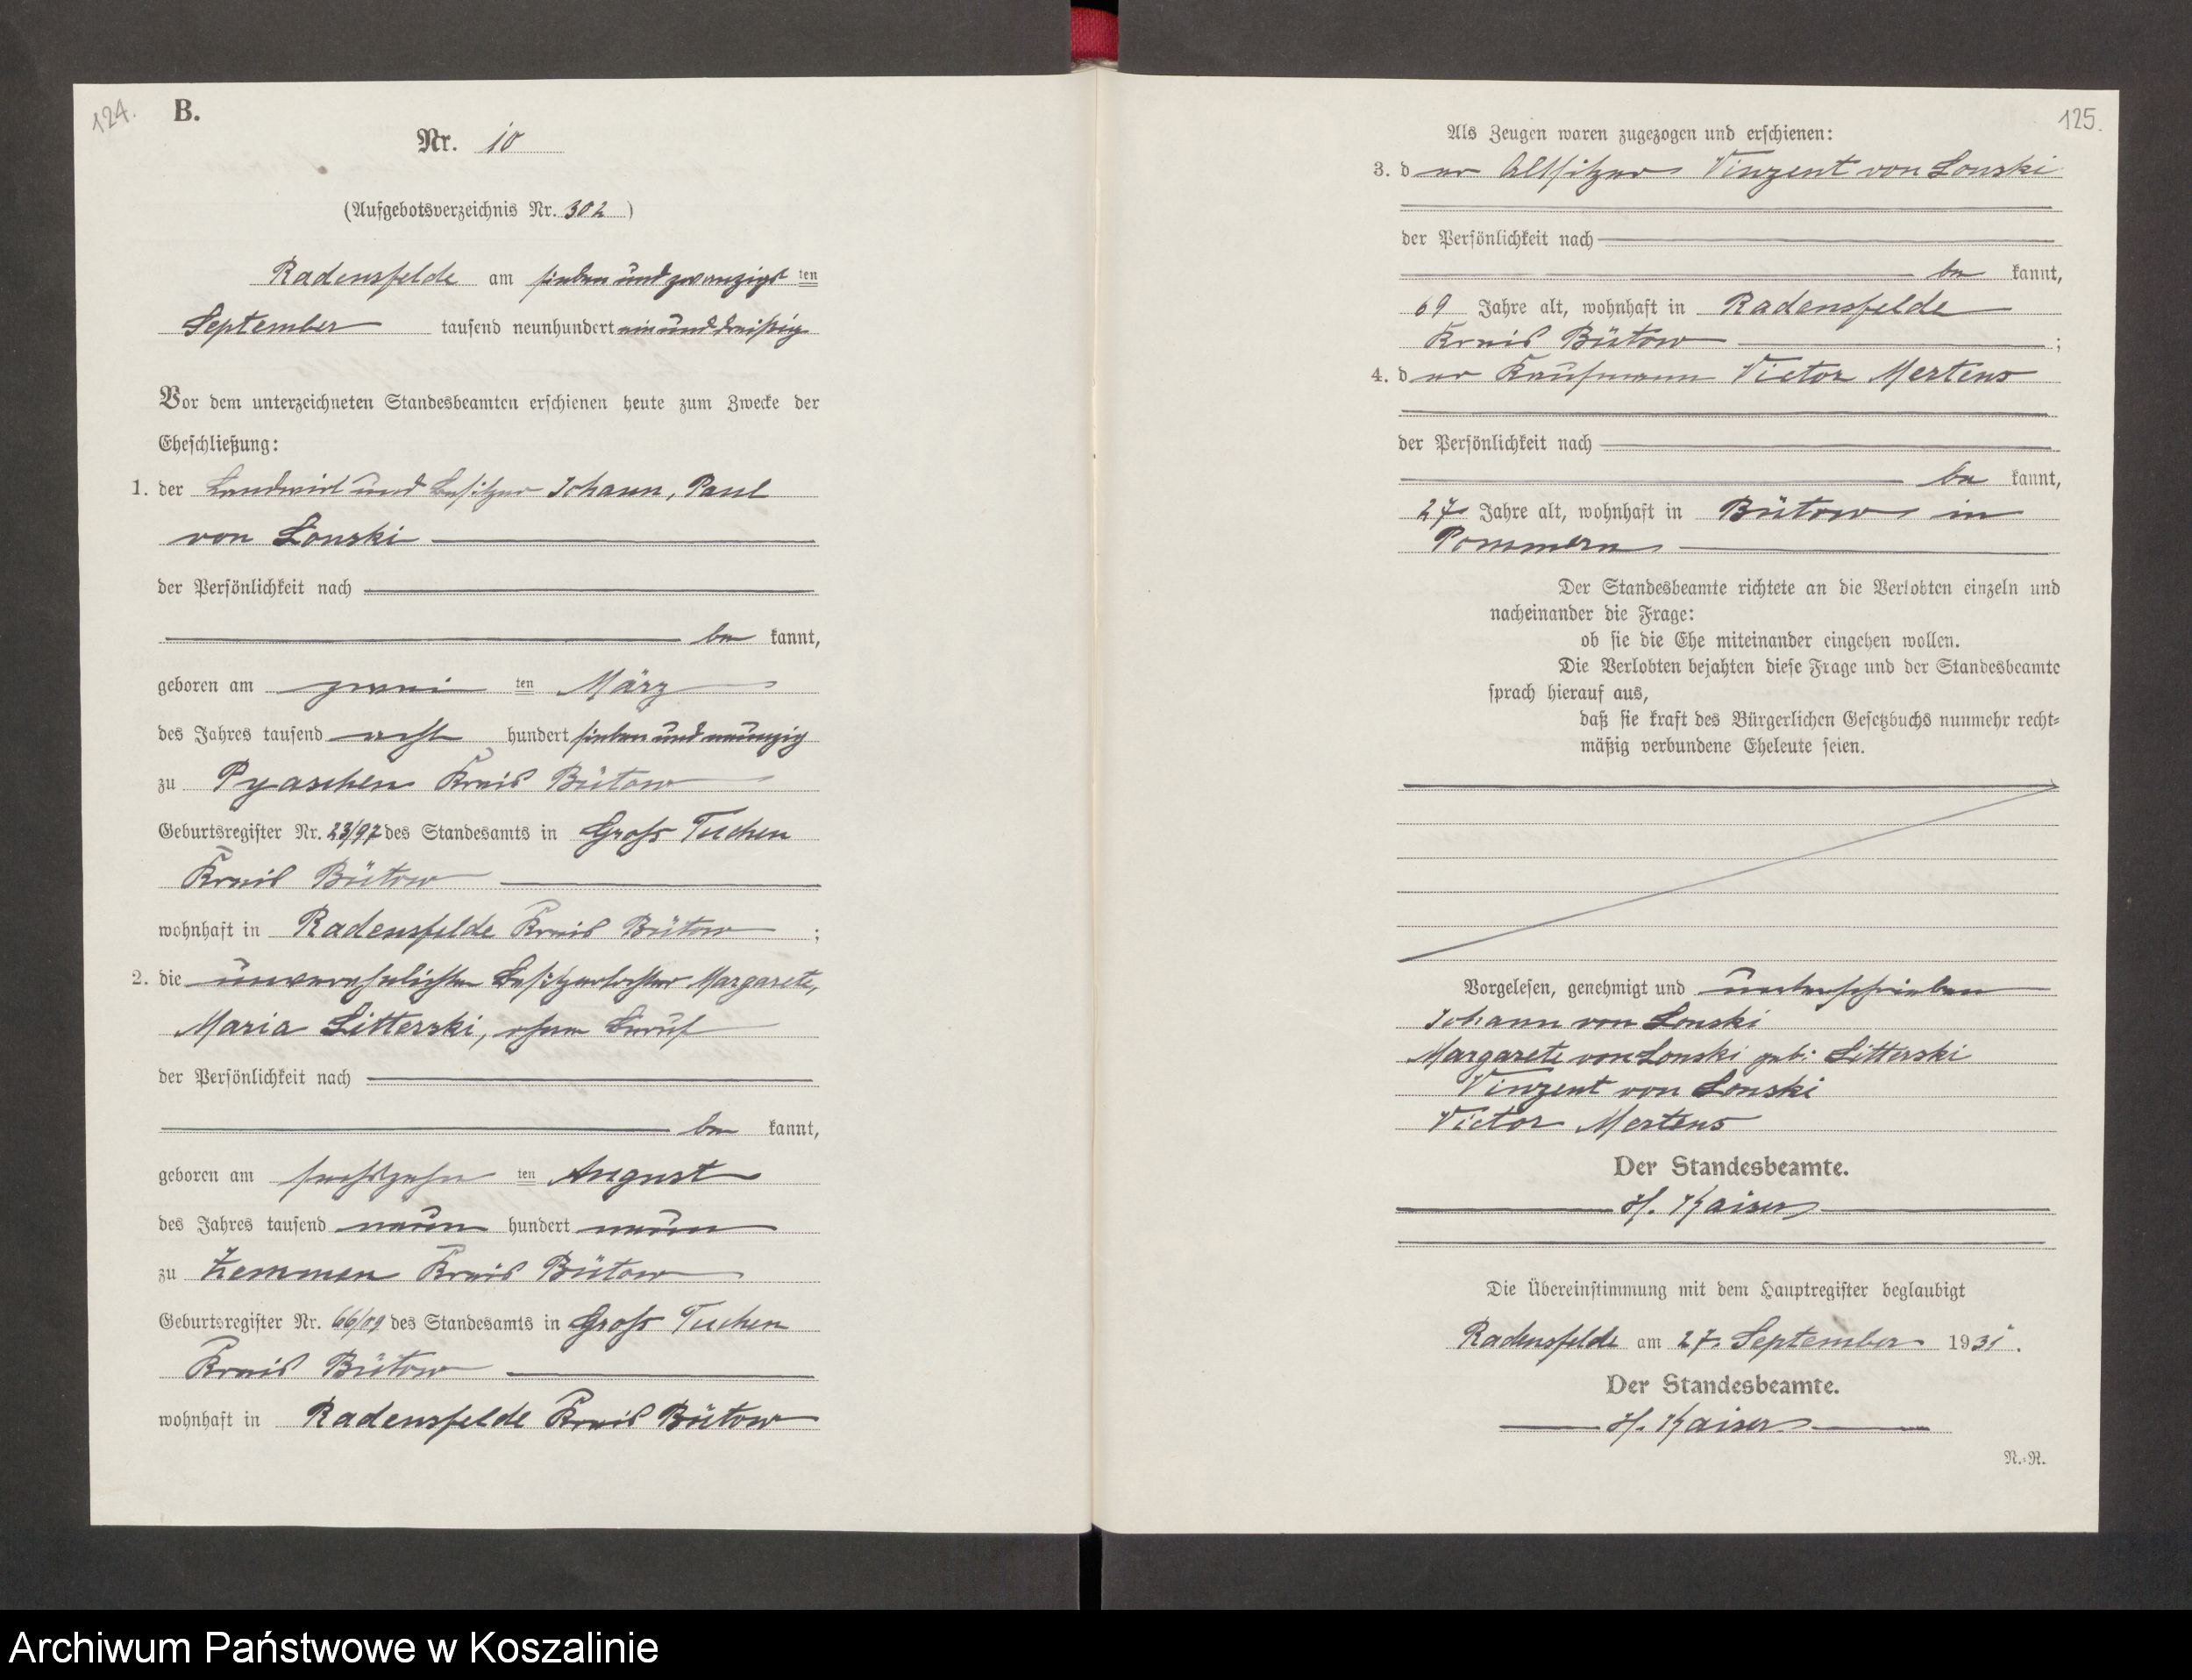 124.
B.
Nr. 10
(Aufgebotsverzeichnis Nr. 302)
Radensfelde am sieben und zwanzigsten
September tausend neunhundert ein und dreißig
Vor dem unterzeichneten Standesbeamten erschienen heute zum Zwecke der
Eheschließung:
1. der Landwirt und Besitzer Johann, Paul
von Lonski
der Persönlichkeit nach
be kannt,
geboren am zwei ten März
des Jahres tausend acht hundert sieben und neunzig
zu Pyaschen Kreis Bütow
Geburtsregister Nr. 23/97 des Standesamts in Groß Tuchen
Kreis Bütow
wohnhaft in Radensfelde Kreis Bütow ;
2. die unverehelichte Besitzertochter Margarete,
Maria Litterski, ohne Beruf
der Persönlichkeit nach
be kannt,
geboren am sechszehn ten August
des Jahres tausend neun hundert neun
zu Zemmen Kreis Bütow
Geburtsregister Nr. 66/09 des Standesamts in Groß Tuchen
Kreis Bütow
wohnhaft in Radensfelde Kreis Bütow
125.
Als Zeugen waren zugezogen und erschienen:
3. der Altsitzer Vinzent von Lonski
der Persönlichkeit nach
be kannt,
69 Jahre alt, wohnhaft in Radensfelde
Kreis Bütow ;
4. der Kaufmann Victor Mertens
der Persönlichkeit nach
be kannt,
27 Jahre alt, wohnhaft in Bütow in
Pommern
Der Standesbeamte richtete an die Verlobten einzeln und
nacheinander die Frage:
ob sie die Ehe miteinander eingehen wollen.
Die Verlobten bejahten diese Frage und der Standesbeamte
sprach hierauf aus,
daß sie kraft des Bürgerlichen Gesetzbuchs nunmehr recht-
mäßig verbundene Eheleute seien.
Vorgelesen, genehmigt und unterschrieben
Johann von Lonski
Margarete von Lonski geb. Litterski
Vinzent von Lonski
Victor Mertens
Der Standesbeamte.
H. Kaiser
Die Übereinstimmung mit dem Hauptregister beglaubigt
Radensfelde am 27. September 1931.
Der Standesbeamte.
H. Kaiser
N.-R.
Archiwum Państwowe w Koszalinie